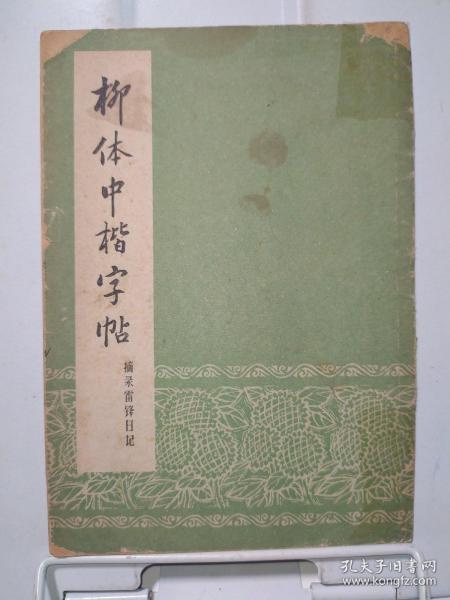 柳体中楷字帖
摘录雷锋日记
孔夫子旧书网
www.kongfz.com